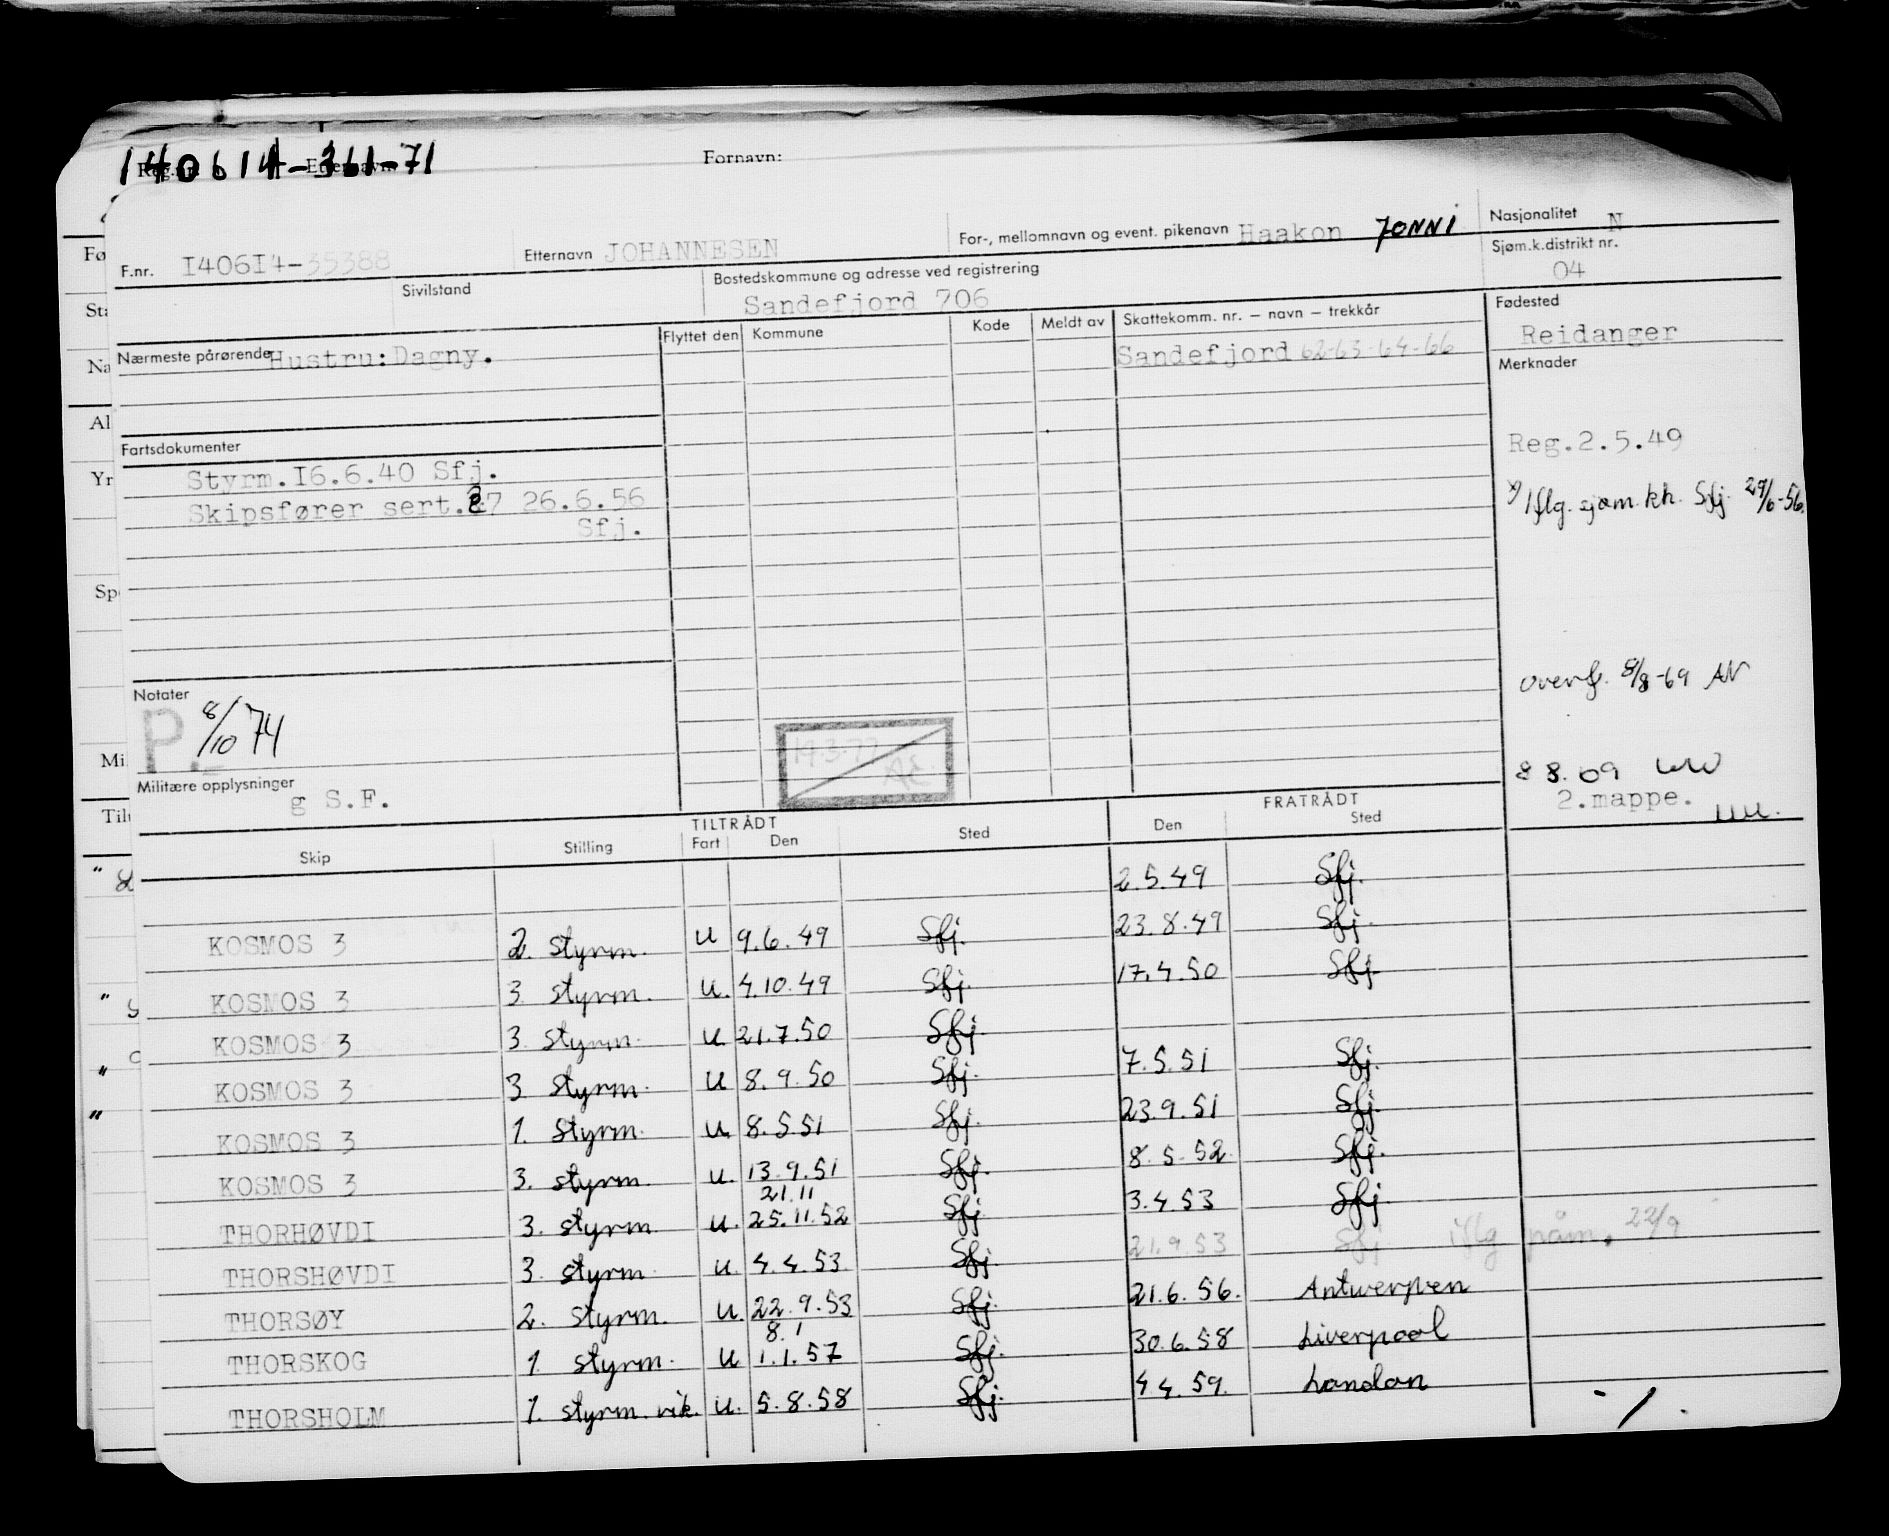 140614-361-71
Fornavn:
F.nr. I406I4-35388 Etternavn JOHANNESEN For-, mellomnavn og event. pikenavn Haakon JONNI Nasjonalitet N
Sivilstand Bostedskommune og adresse ved registrering Sandefjord 706 Sjøm.k.distrikt nr. 04
Nærmeste pårørende Hustru: Dagny.
Flyttet den Kommune Kode Meldt av Skattekomm. nr. – navn – trekkår
Sandefjord 62-63-64-66
Fødested
Reidanger
Merknader
Reg.2.5.49
x) Iflg. sjøm.kh. Sfj. 29/6-56.
overf. 8/8-69 AN
8 8.69
2.mappe.
Fartsdokumenter
Styrm.I6.6.40 Sfj.
Skipsfører sert. 26.6.56
Sfj.
Notater
P. 8/10 74
19.3.77
AE.
Militære opplysninger
g S.F.
TILTRÅDT FRATRÅDT
Skip Stilling Fart Den Sted Den Sted
2.5.49 Sfj.
KOSMOS 3 2. styrm. u 9.6.49 Sfj. 23.8.49 Sfj.
KOSMOS 3 3 styrm. u. 4.10.49 Sfj. 17.4.50 Sfj.
KOSMOS 3 3. styrm. u. 21.7.50 Sfj.
KOSMOS 3 3 styrm. u 8.9.50 Sfj. 7.5.51 Sfj.
KOSMOS 3 1. styrm. u. 8.5.51 Sfj. 23.9.51 Sfj.
KOSMOS 3 3. styrm. u. 13.9.51 Sfj. 8.5.52 Sfj.
21.11
THORHØVDI 3. styrm. u. 25.11.52 Sfj. 3.4.53 Sfj.
THORSHØVDI 3. styrm. u. 4.4.53. Sfj. 21.9.53 Sfj iflg påm. 22/9
THORSØY 2. styrm. u. 22.9.53 Sfj. 21.6.56. Antwerpen
8.1
THORSKOG 1 styrm. u 1.1.57 Sfj. 30.6.58 Liverpool
THORSHOLM 1. styrm. vik. u. 5.8.58 Sfj. 4 4.59. London